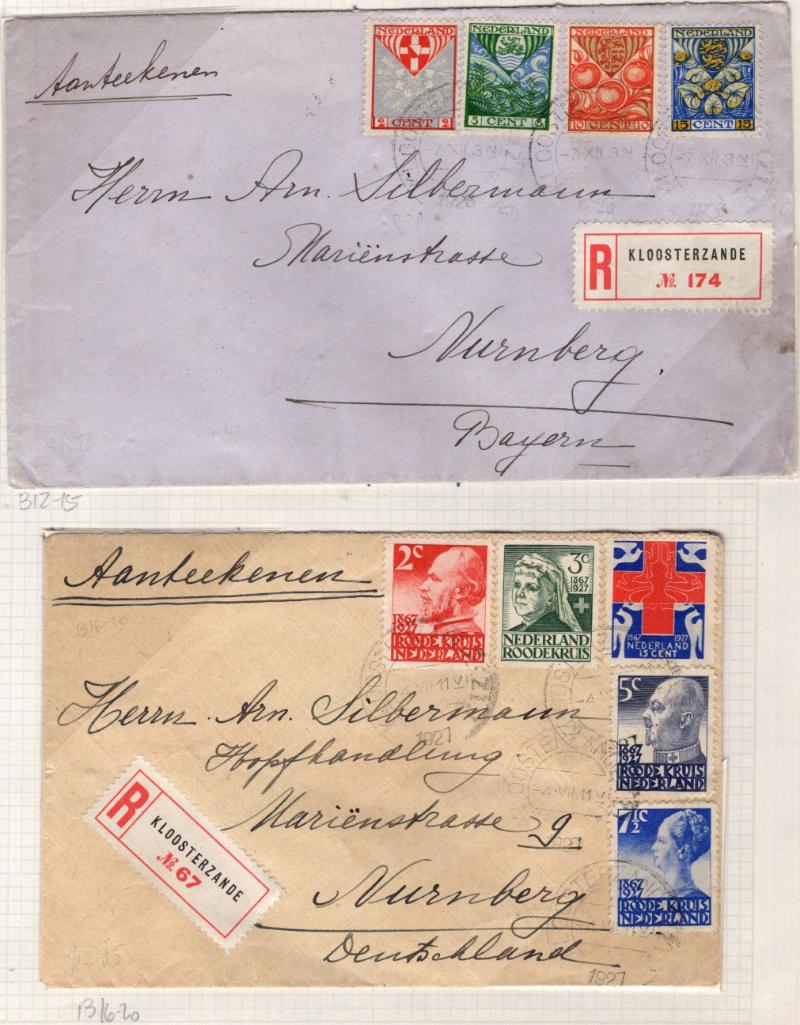 Aanteekenen
NEDERLAND
2 CENT 2
NEDERLAND
5 CENT 5
NEDERLAND
10 CENT 10
NEDERLAND
15 CENT 15
7 XII 8N
1926
-7 XII 8N
-7 XII 8N
Herrn Arn. Silbermann
Mariënstrasse
R KLOOSTERZANDE
No. 174
Nurnberg.
Bayern
B12-15
Aanteekenen
B16-20
2c
1867
1927
ROODE KRUIS
NEDERLAND
3c
1867
1927
NEDERLAND
ROODEKRUIS
1867 1927
NEDERLAND
15 CENT
5c
1867
1927
ROODE KRUIS
NEDERLAND
7½c
1867
1927
ROODE KRUIS
NEDERLAND
1927
-4.VII.11V
1927
Herrn Arn. Silbermann
Hopfhandlung
Mariënstrasse 9
Nurnberg
Deutschland
R KLOOSTERZANDE
No. 67
B16-20